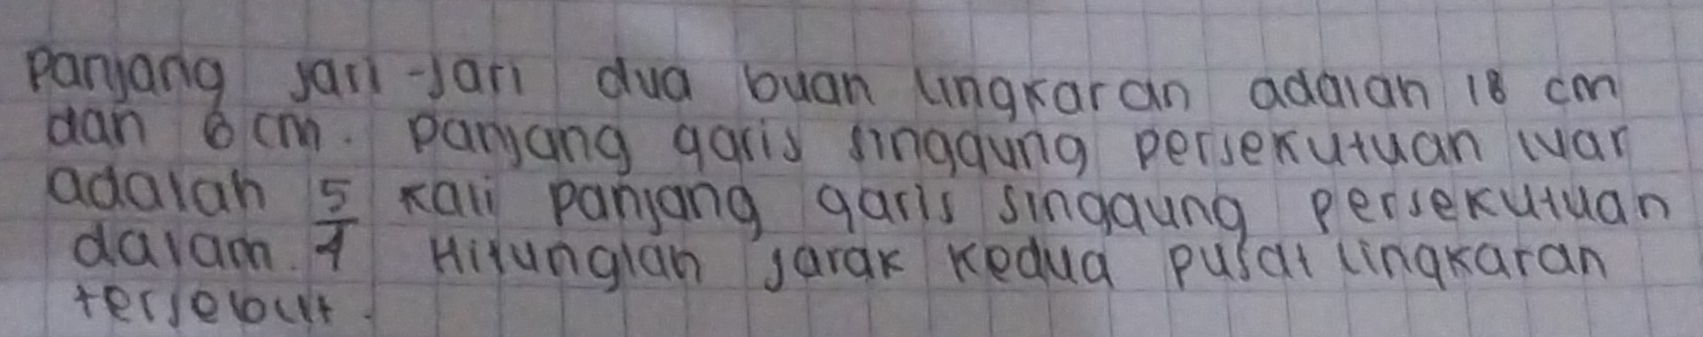 Panjang jari-jari dua buah lingkaran adalah 18 cm
dan 6 cm. Panjang garis singgung persekutuan luar
adalah 5/4 kali panjang garis singgung persekutuan
dalam. Hitunglah jarak kedua pusat lingkaran
tersebut.